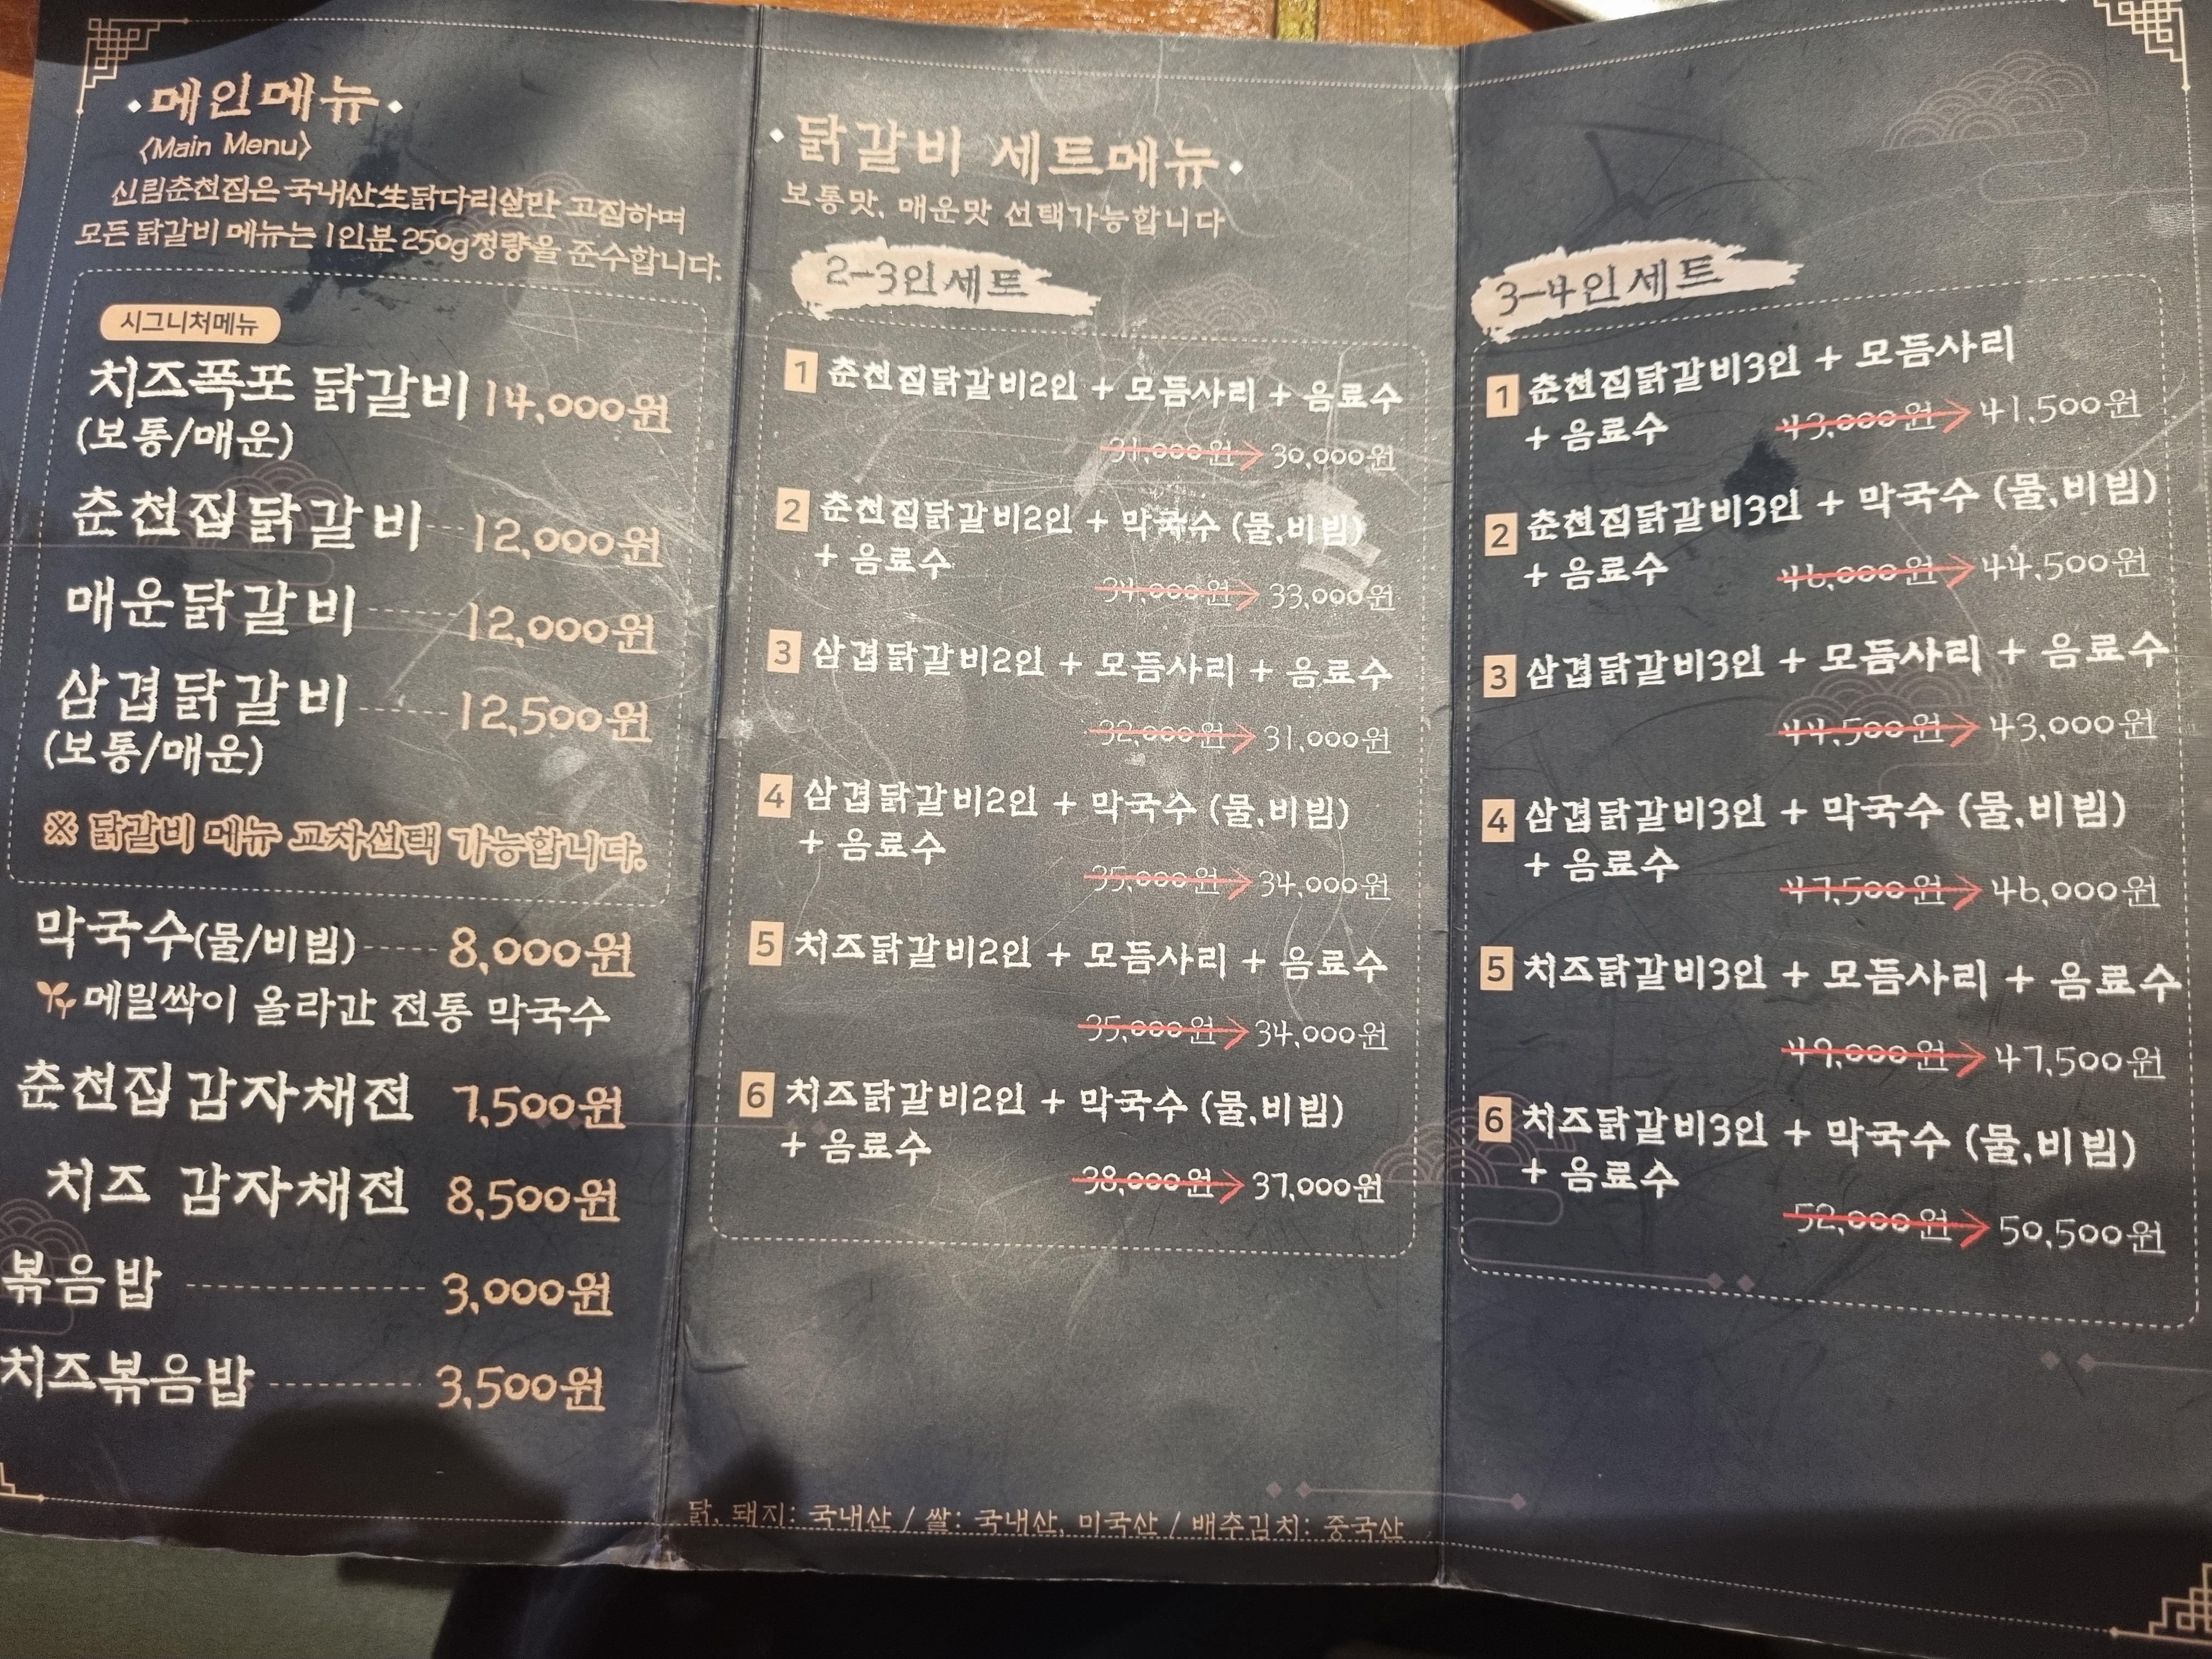 메인메뉴
〈Main Menu〉
신림춘천집은 국내산生닭다리살만 고집하며
모든 닭갈비 메뉴는 1인분 250g정량을 준수합니다.
시그니처메뉴
치즈폭포 닭갈비 14,000원
(보통/매운)
춘천집닭갈비 12,000원
매운닭갈비 12,000원
삼겹닭갈비 12,500원
(보통/매운)
※ 닭갈비 메뉴 교차선택 가능합니다.
막국수(물/비빔) 8,000원
메밀싹이 올라간 전통 막국수
춘천집감자채전 7,500원
치즈 감자채전 8,500원
볶음밥 3,000원
치즈볶음밥 3,500원
닭갈비 세트메뉴
보통맛, 매운맛 선택가능합니다
2-3인세트
1 춘천집닭갈비2인 + 모듬사리 + 음료수
31,000원 → 30,000원
2 춘천집닭갈비2인 + 막국수 (물,비빔)
+ 음료수
34,000원 → 33,000원
3 삼겹닭갈비2인 + 모듬사리 + 음료수
32,000원 → 31,000원
4 삼겹닭갈비2인 + 막국수 (물,비빔)
+ 음료수
35,000원 → 34,000원
5 치즈닭갈비2인 + 모듬사리 + 음료수
35,000원 → 34,000원
6 치즈닭갈비2인 + 막국수 (물,비빔)
+ 음료수
38,000원 → 37,000원
닭, 돼지: 국내산 / 쌀: 국내산, 미국산 / 배추김치: 중국산
3-4인세트
1 춘천집닭갈비3인 + 모듬사리
+ 음료수 43,000원 → 41,500원
2 춘천집닭갈비3인 + 막국수 (물,비빔)
+ 음료수 46,000원 → 44,500원
3 삼겹닭갈비3인 + 모듬사리 + 음료수
44,500원 → 43,000원
4 삼겹닭갈비3인 + 막국수 (물,비빔)
+ 음료수
47,500원 → 46,000원
5 치즈닭갈비3인 + 모듬사리 + 음료수
49,000원 → 47,500원
6 치즈닭갈비3인 + 막국수 (물,비빔)
+ 음료수
52,000원 → 50,500원